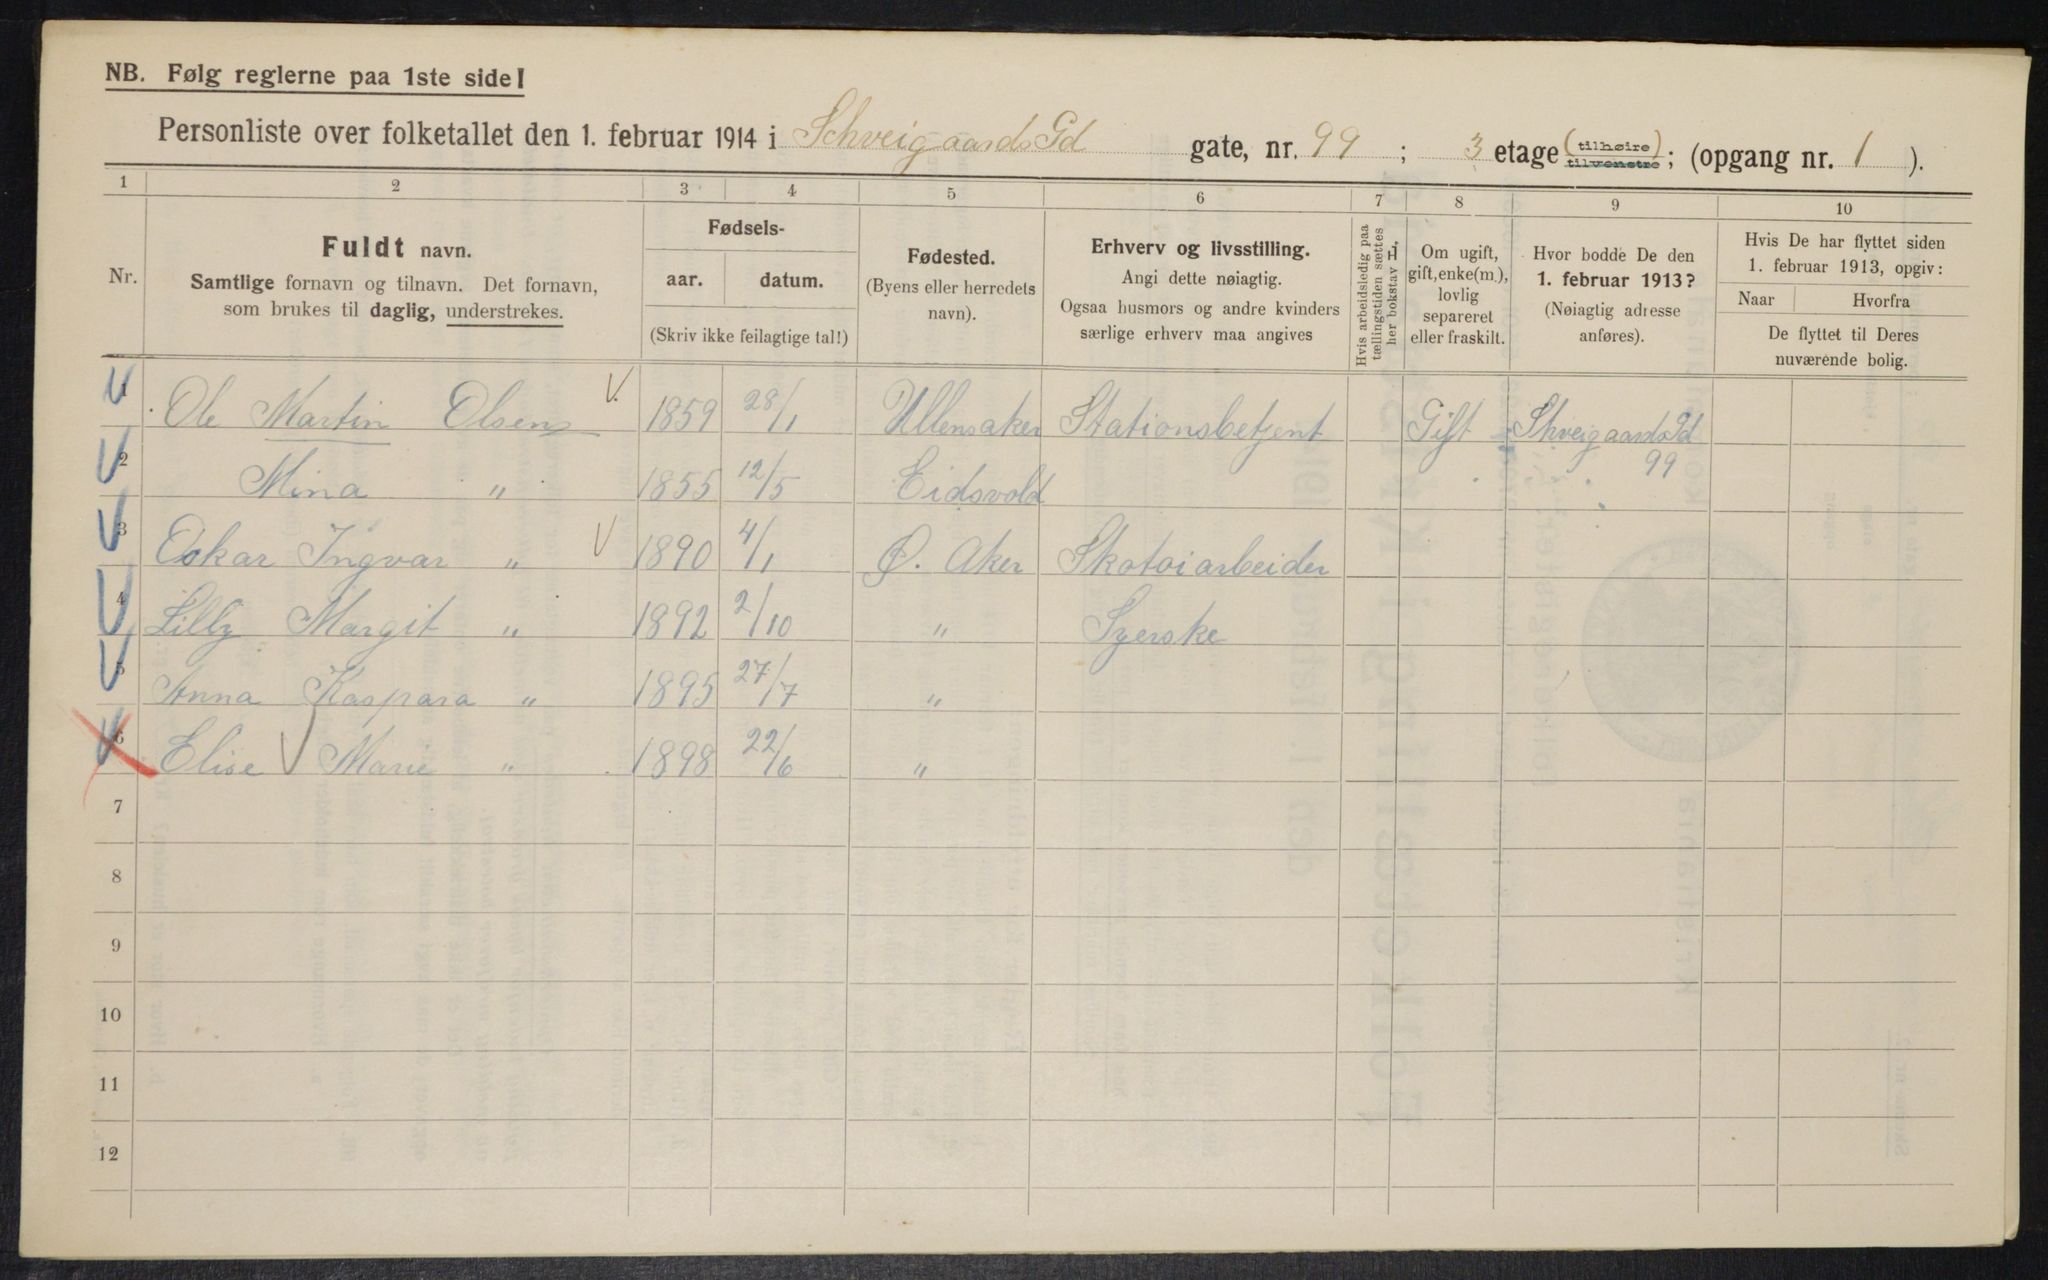 NB. Følg reglerne paa 1ste side!
Personliste over folketallet den 1. februar 1914 i Schveigaards Gd gate, nr. 99 ; 3 etage (tilhøire) tilvenstre ; (opgang nr. 1 ).
1 2 3 4 5 6 7 8 9 10
Nr.
Fuldt navn.
Samtlige fornavn og tilnavn. Det fornavn,
som brukes til daglig, understrekes.
Fødsels-
aar. datum.
(Skriv ikke feilagtige tal!)
Fødested.
(Byens eller herredets
navn).
Erhverv og livsstilling.
Angi dette nøiagtig.
Ogsaa husmors og andre kvinders
særlige erhverv maa angives
Hvis arbeidsledig paa
tællingstiden sættes
her bokstav L.
Om ugift,
gift, enke(m.),
lovlig
separeret
eller fraskilt.
Hvor bodde De den
1. februar 1913?
(Nøiagtig adresse
anføres).
Hvis De har flyttet siden
1. februar 1913, opgiv:
Naar Hvorfra
De flyttet til Deres
nuværende bolig.
1 Ole Martin Olsen V. 1859 28/1 Ullensaker Stationsbetjent Gift Shveigaards Gd
99
2 Mina " 1855 12/5 Eidsvold
3 Oskar Ingvar " V 1890 4/1 Ø. Aker Skotøiarbeider
4 Lilly Margit " 1892 2/10 " Syerske
5 Anna Kaspara " 1895 27/7 "
6 Elise V Marie " 1898 22/6 "
7
8
9
10
11
12